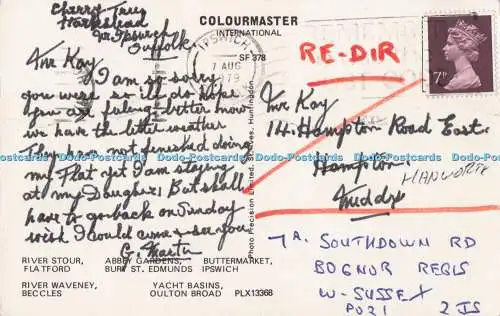 Cherry Tree
Harkstead
Nr. Ipswich
Suffolk
COLOURMASTER
INTERNATIONAL
SF 378
IPSWICH
7 AUG
1979
RE-DIR
7P
Mr Kay
I am so sorry
you were so ill do hope
you are feeling better now
we have the better weather
They have not finished doing
my Flat yet I am staying
at my Daughters But shall
have to go back on Sunday
wish I could come & see you
G. Martin
Photo Precision Limited, St. Ives, Huntingdon
Mr Kay
14 Hampton Road East
Hampton
HANWORTH
Middx
7A. SOUTHDOWN RD
BOGNOR REGIS
W-SUSSEX
PO21 2JS
RIVER STOUR, ABBEY GARDENS, BUTTERMARKET,
FLATFORD BURY ST. EDMUNDS IPSWICH
RIVER WAVENEY, YACHT BASINS,
BECCLES OULTON BROAD PLX13368
Dodo-Postcards Dodo-Postcards Dodo-Postcards Dodo-Postcards Dodo-Postcards